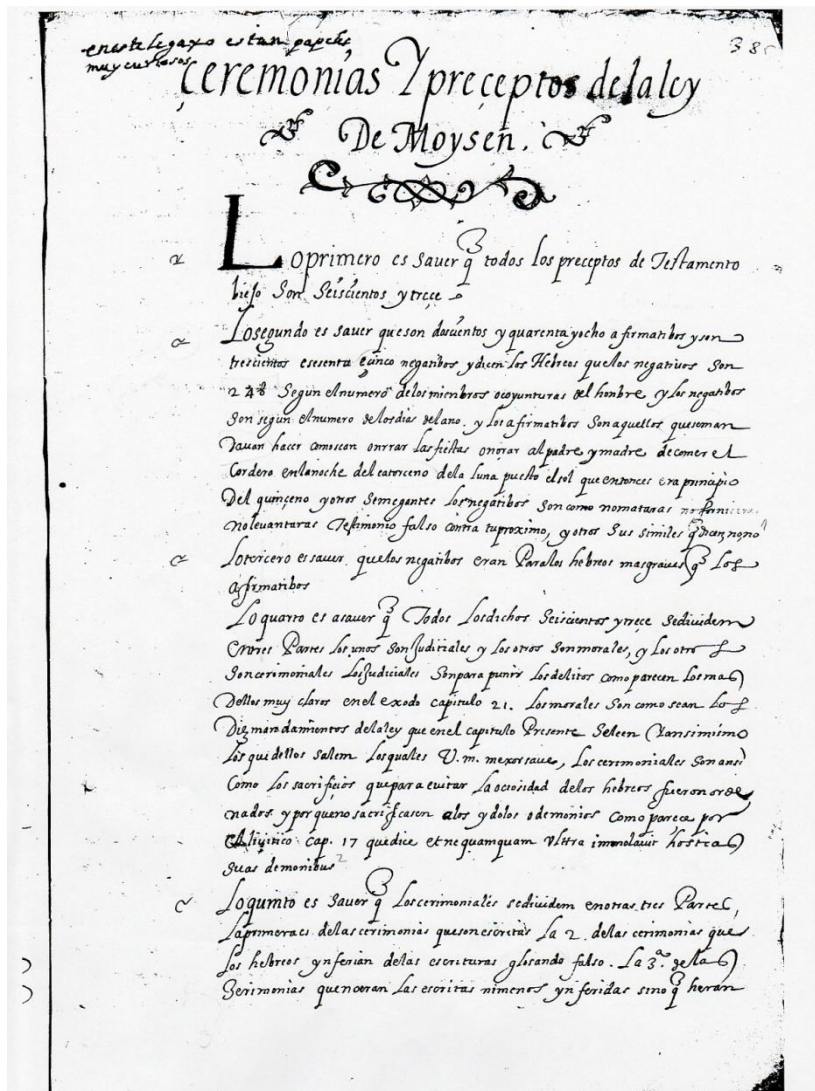 en este legaxo estan papeles
muy curiosos
385
Ceremonias Y preçeptos de la ley
De Moysen.
Lo primero es saver q todos los preceptos de Testamento
biejo son seiscientos y treçe
Lo segundo es saver que son doscientos y quarenta y ocho afirmatibos y son
trescientos esesenta cinco negatibos, y dicen los Hebreos que los negativos son
248 Segun el numero de los mienbros o coyunturas del honbre, y los negatibos
son segun el numero de los dias del ano. y los afirmatibos son aquellos que se man
davan hacer como son onrrar las fiestas onorar al padre y madre de comer el
Cordero en la noche del catorceno de la luna puesto el sol que entonces era principio
Del quinçeno y otros semegantes los negatibos son como no mataras no fornicaras
no levantaras Testimonio falso contra tu proximo, y otros sus similes q dicen no no
Lo tercero es saver, que los negatibos eran Para los hebreos mas graves q los
afirmatibos
Lo quarto es asaver q Todos Los dichos Seiscientos y treçe se dividem
en tres Partes los unos son Judiciales y los otros son morales, y los otros
son cerimoniales Los Judiciales son para punir los delitos como parecen los mas
Dellos muy claros en el exodo capitulo 21. Los morales son como sean los
Diez mandamientos de la ley que en el capitulo Presente se leen y ansimismo
Los que dellos salem los quales V. m. mexor save, Los cerimoniales son ansi
Como los sacrificios que para evitar la ociosidad de los hebreos fueron orde
nados y por que no sacrificasen a los ydolos o demonios como pareçe por
el livitico cap. 17 que dice et nequamquam ulttra imonolavit hostias
suas demonibus 2
Lo quinto es saver q Los cerimoniales se dividem en otras tres Partes,
La primera es de las cerimonias que son escritas La 2. de las cerimonias que
los hebreos ynferian de las escrituras glosando falso. La 3ª. de las
Zerimonias que no eran las escritas ni menos ynferidas sino q heran